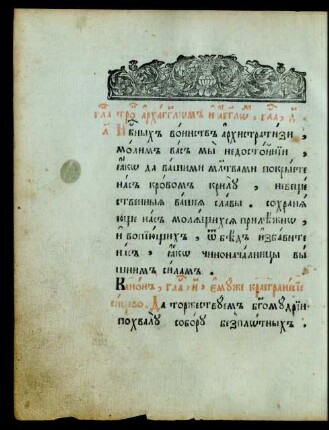 Нб҃ныхъ воинствъ а҆рхистратѝзи,
мо́лимъ ва́съ мы̀ недосто́йнїи,
ꙗ҆́кѡ да ва́шими мл҃твами покры́ете
на́съ кро́вомъ крилꙋ̀, невеще
ственныѧ ва́шеѧ сла́вы. сохранѧ́
юще на́съ молѧ́щихсѧ приле́жнѡ,
и҆ вопїю́щихъ, ѿ бѣ́дъ и҆зба́вите
на́съ, ꙗ҆́кѡ чинонача́лницы вы́
шнимъ си́ламъ.
Кано́нъ, гла́, и҃, є҆мꙋ́же краегране́сїе
Да торжествꙋ́емъ бг҃омꙋ́дрїи
похва́лꙋ собо́рꙋ безпло́тныхъ.